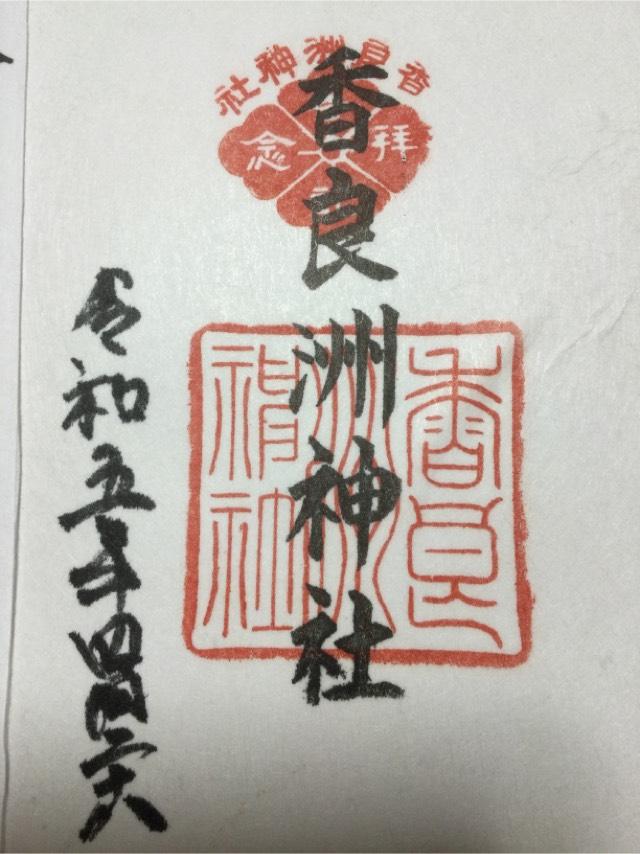 香良洲神社
拝
念
香良洲神社
香良洲神社
令和五年四月二六